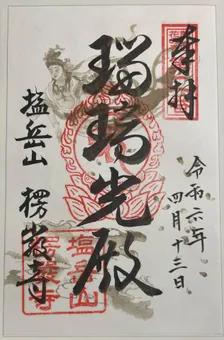 奉拝
令和六年
四月十三日
瑠璃光殿
塩岳山 楞厳寺
塩岳山
楞厳寺